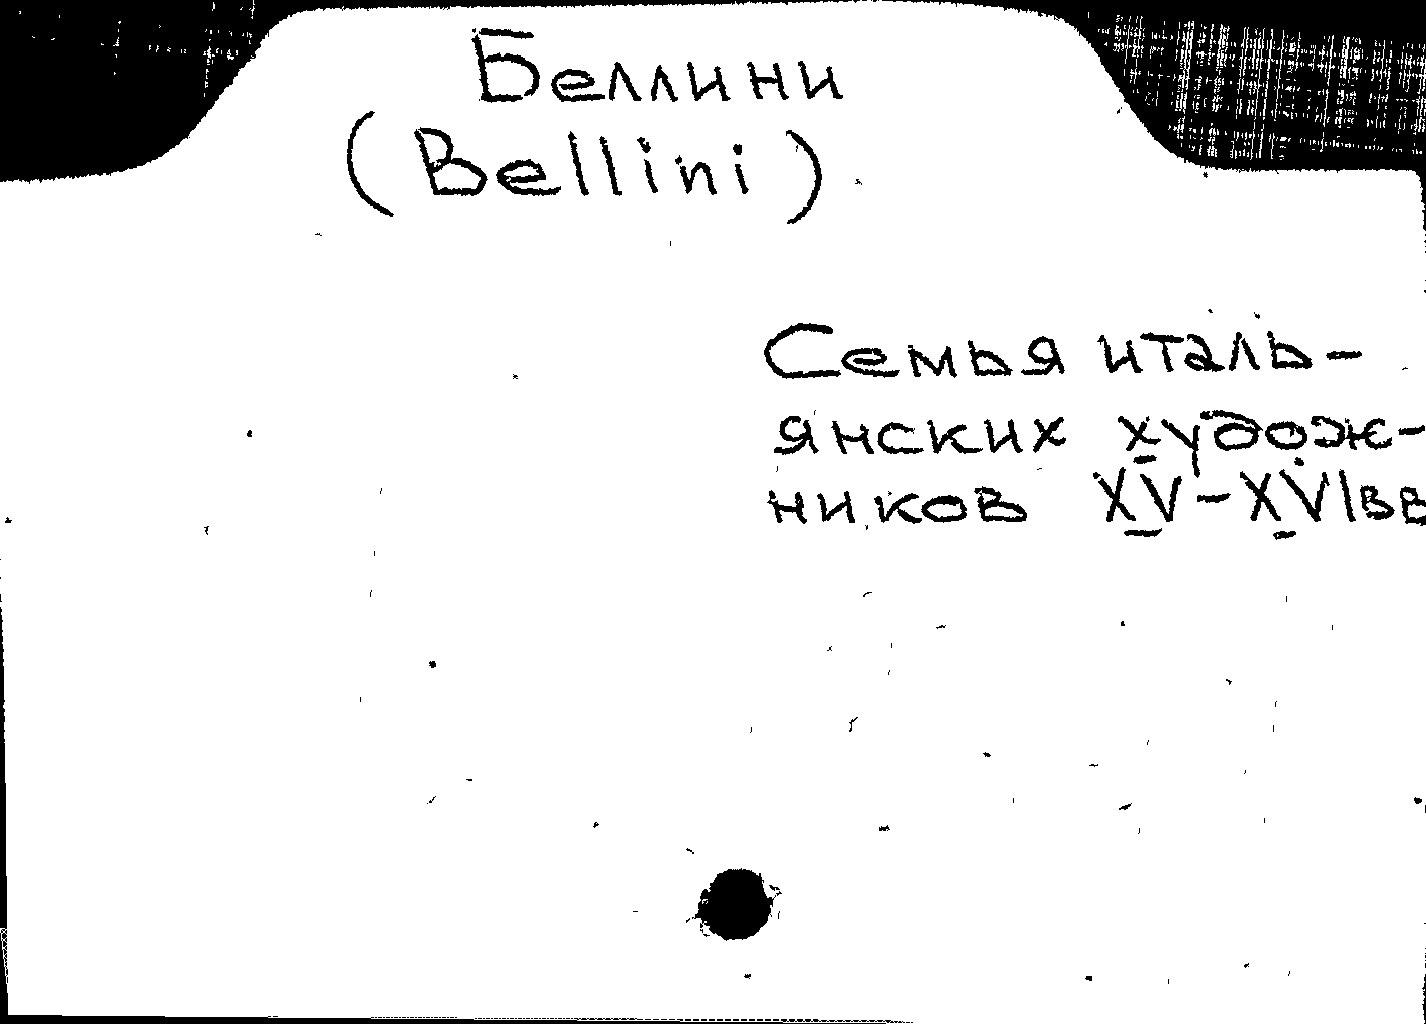 Беллини
(Bellini)
Семья италь-
янских худож-
ников XV-XVIвв